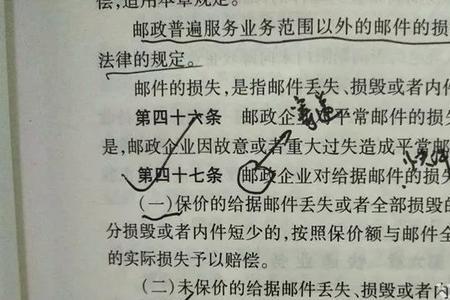 偿,适用本章规定。
邮政普遍服务业务范围以外的邮件的损
法律的规定。
邮件的损失,是指邮件丢失、损毁或者内件
第四十六条 邮政企业对平常邮件的损失
是,邮政企业因故意或者重大过失造成平常邮
第四十七条 邮政企业对给据邮件的损失
(一)保价的给据邮件丢失或者全部损毁的
分损毁或者内件短少的,按照保价额与邮件全
的实际损失予以赔偿。
(二)未保价的给据邮件丢失、损毁或者内